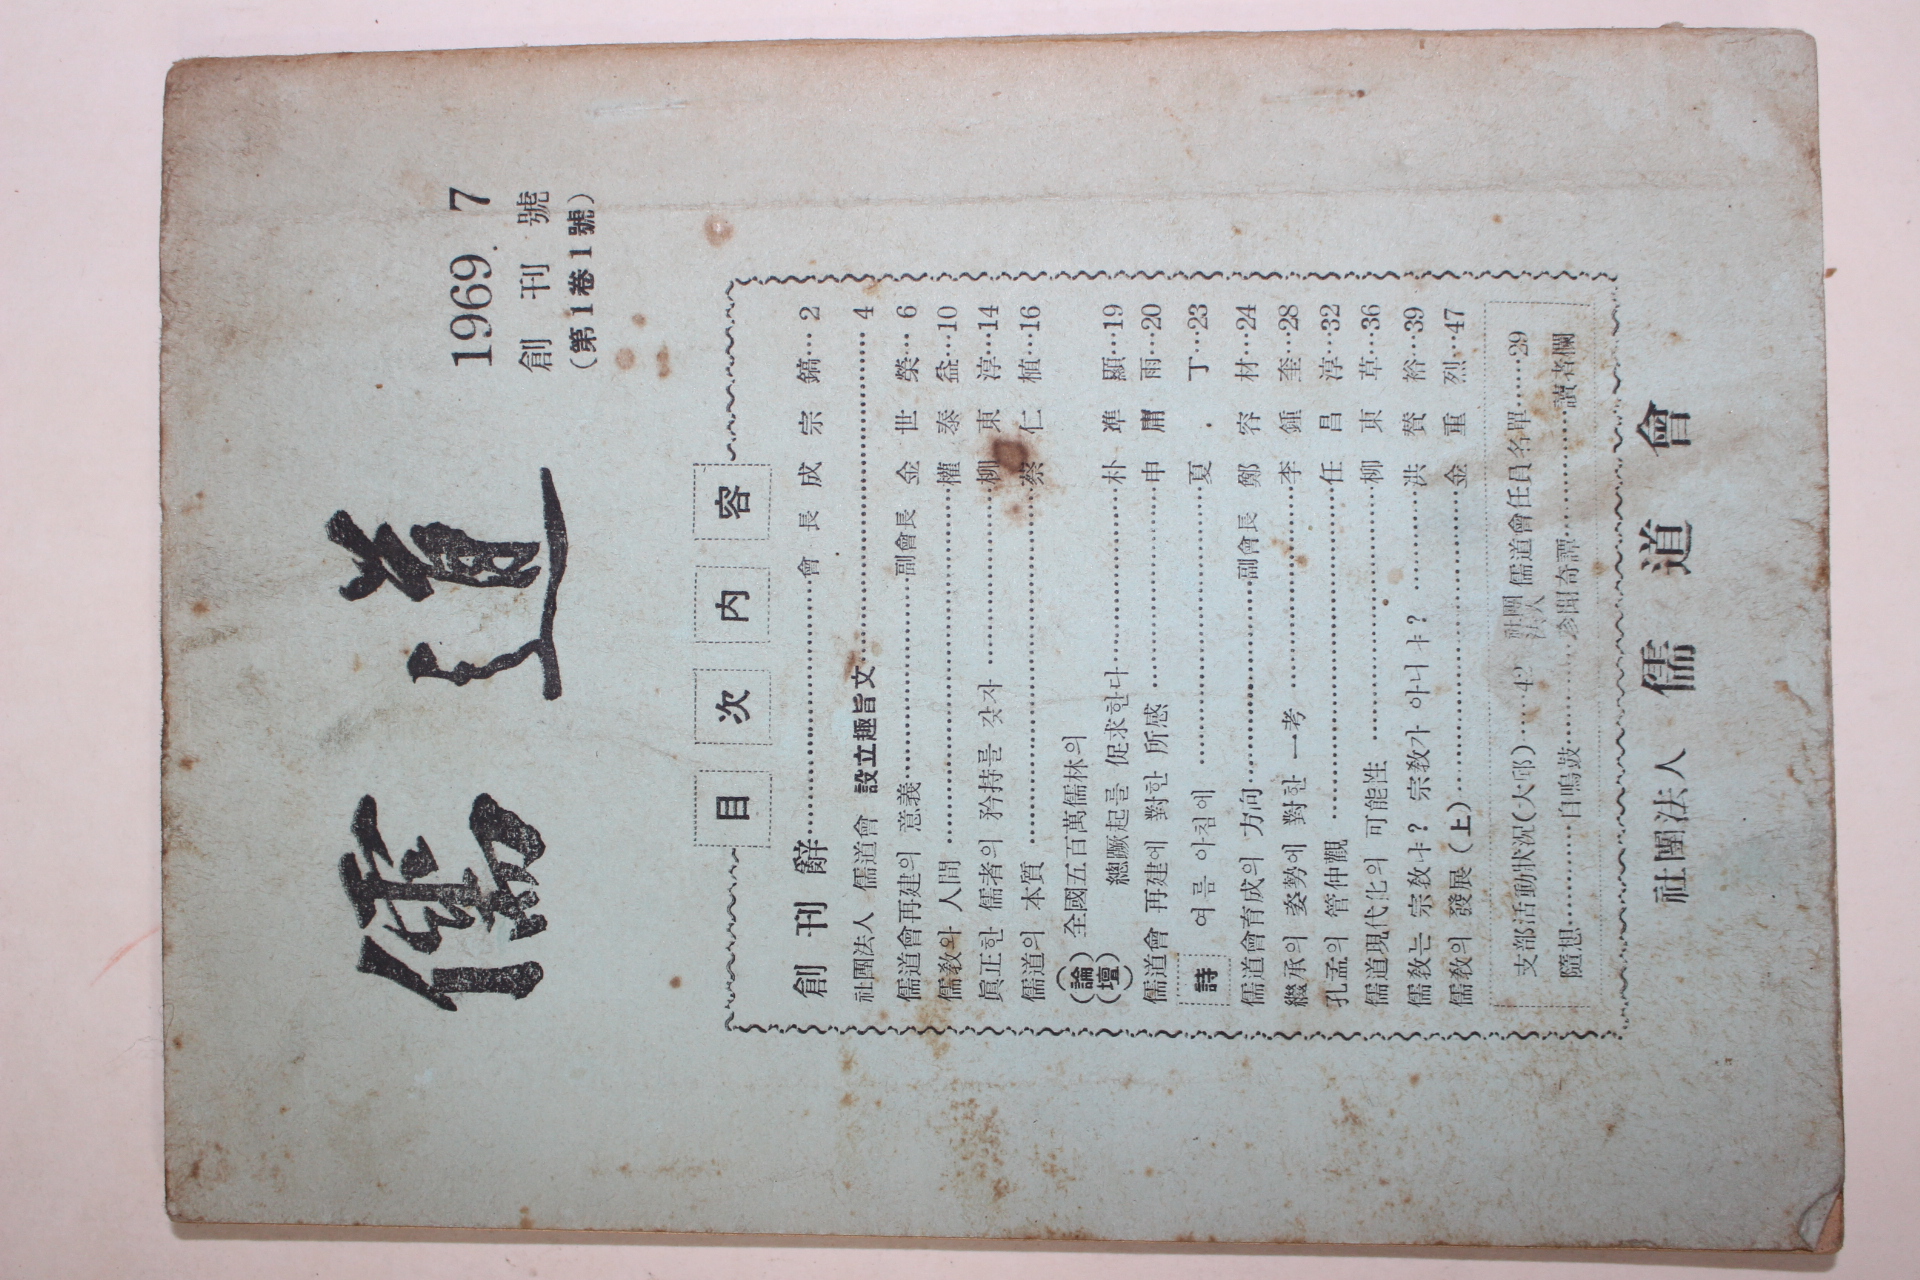 儒道
1969. 7
創刊號
(第1卷1號)
目次內容
創刊辭……會長 成宗鎬…2
社團法人 儒道會 設立趣旨文……4
儒道會再建의 意義……副會長 金世榮…6
儒敎와 人間……權泰益…10
眞正한 儒者의 矜持를 갖자……柳東淳…14
儒道의 本質……蔡仁植…16
(論壇) 全國五百萬儒林의
總蹶起를 促求한다……朴準顯…19
儒道會 再建에 對한 所感……申庸雨…20
詩 여름 아침에……夏·丁…23
儒道會育成의 方向……副會長 鄭容材…24
繼承의 姿勢에 對한 一考……李鍾奎…28
孔孟의 管仲觀……任昌淳…32
儒道現代化의 可能性……柳東草…36
儒敎는 宗敎냐? 宗敎가 아니냐?……洪贊裕…39
儒敎의 發展(上)……金重烈…47
支部活動狀況(大邱)……42 社團法人 儒道會任員名單……29
隨想……自鳴鼓……珍聞奇譚……讀者欄
社團法人 儒道會